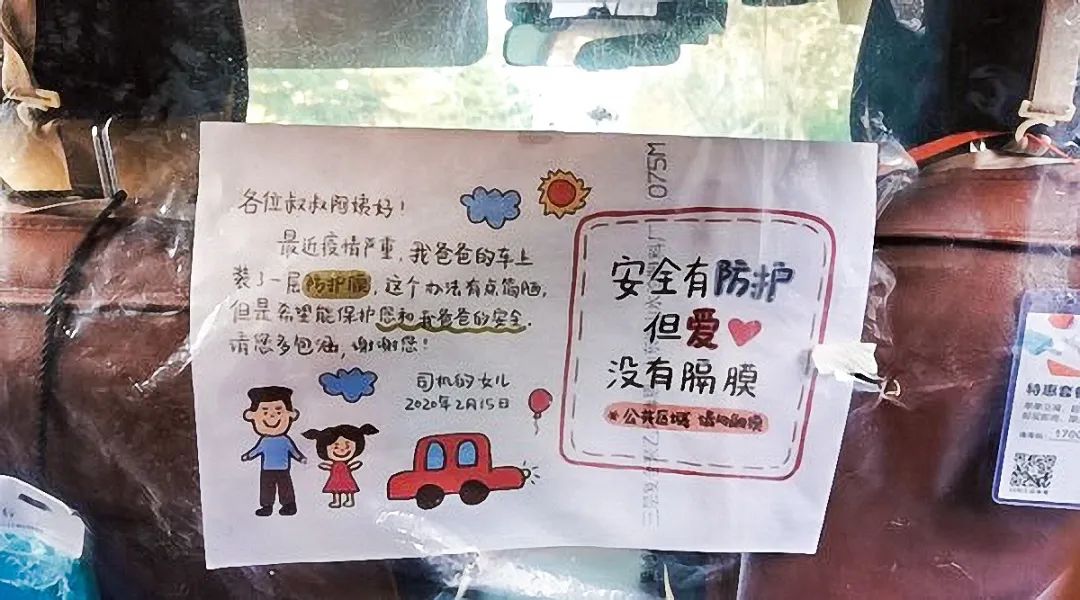 各位叔叔阿姨好！
最近疫情严重，我爸爸的车上
装了一层防护膜，这个办法有点简陋，
但是希望能保护您和我爸爸的安全。
请您多包涵，谢谢您！
司机的女儿
2020年2月15日
安全有防护
但爱
没有隔膜
公共区域 请勿
075M
特惠套餐